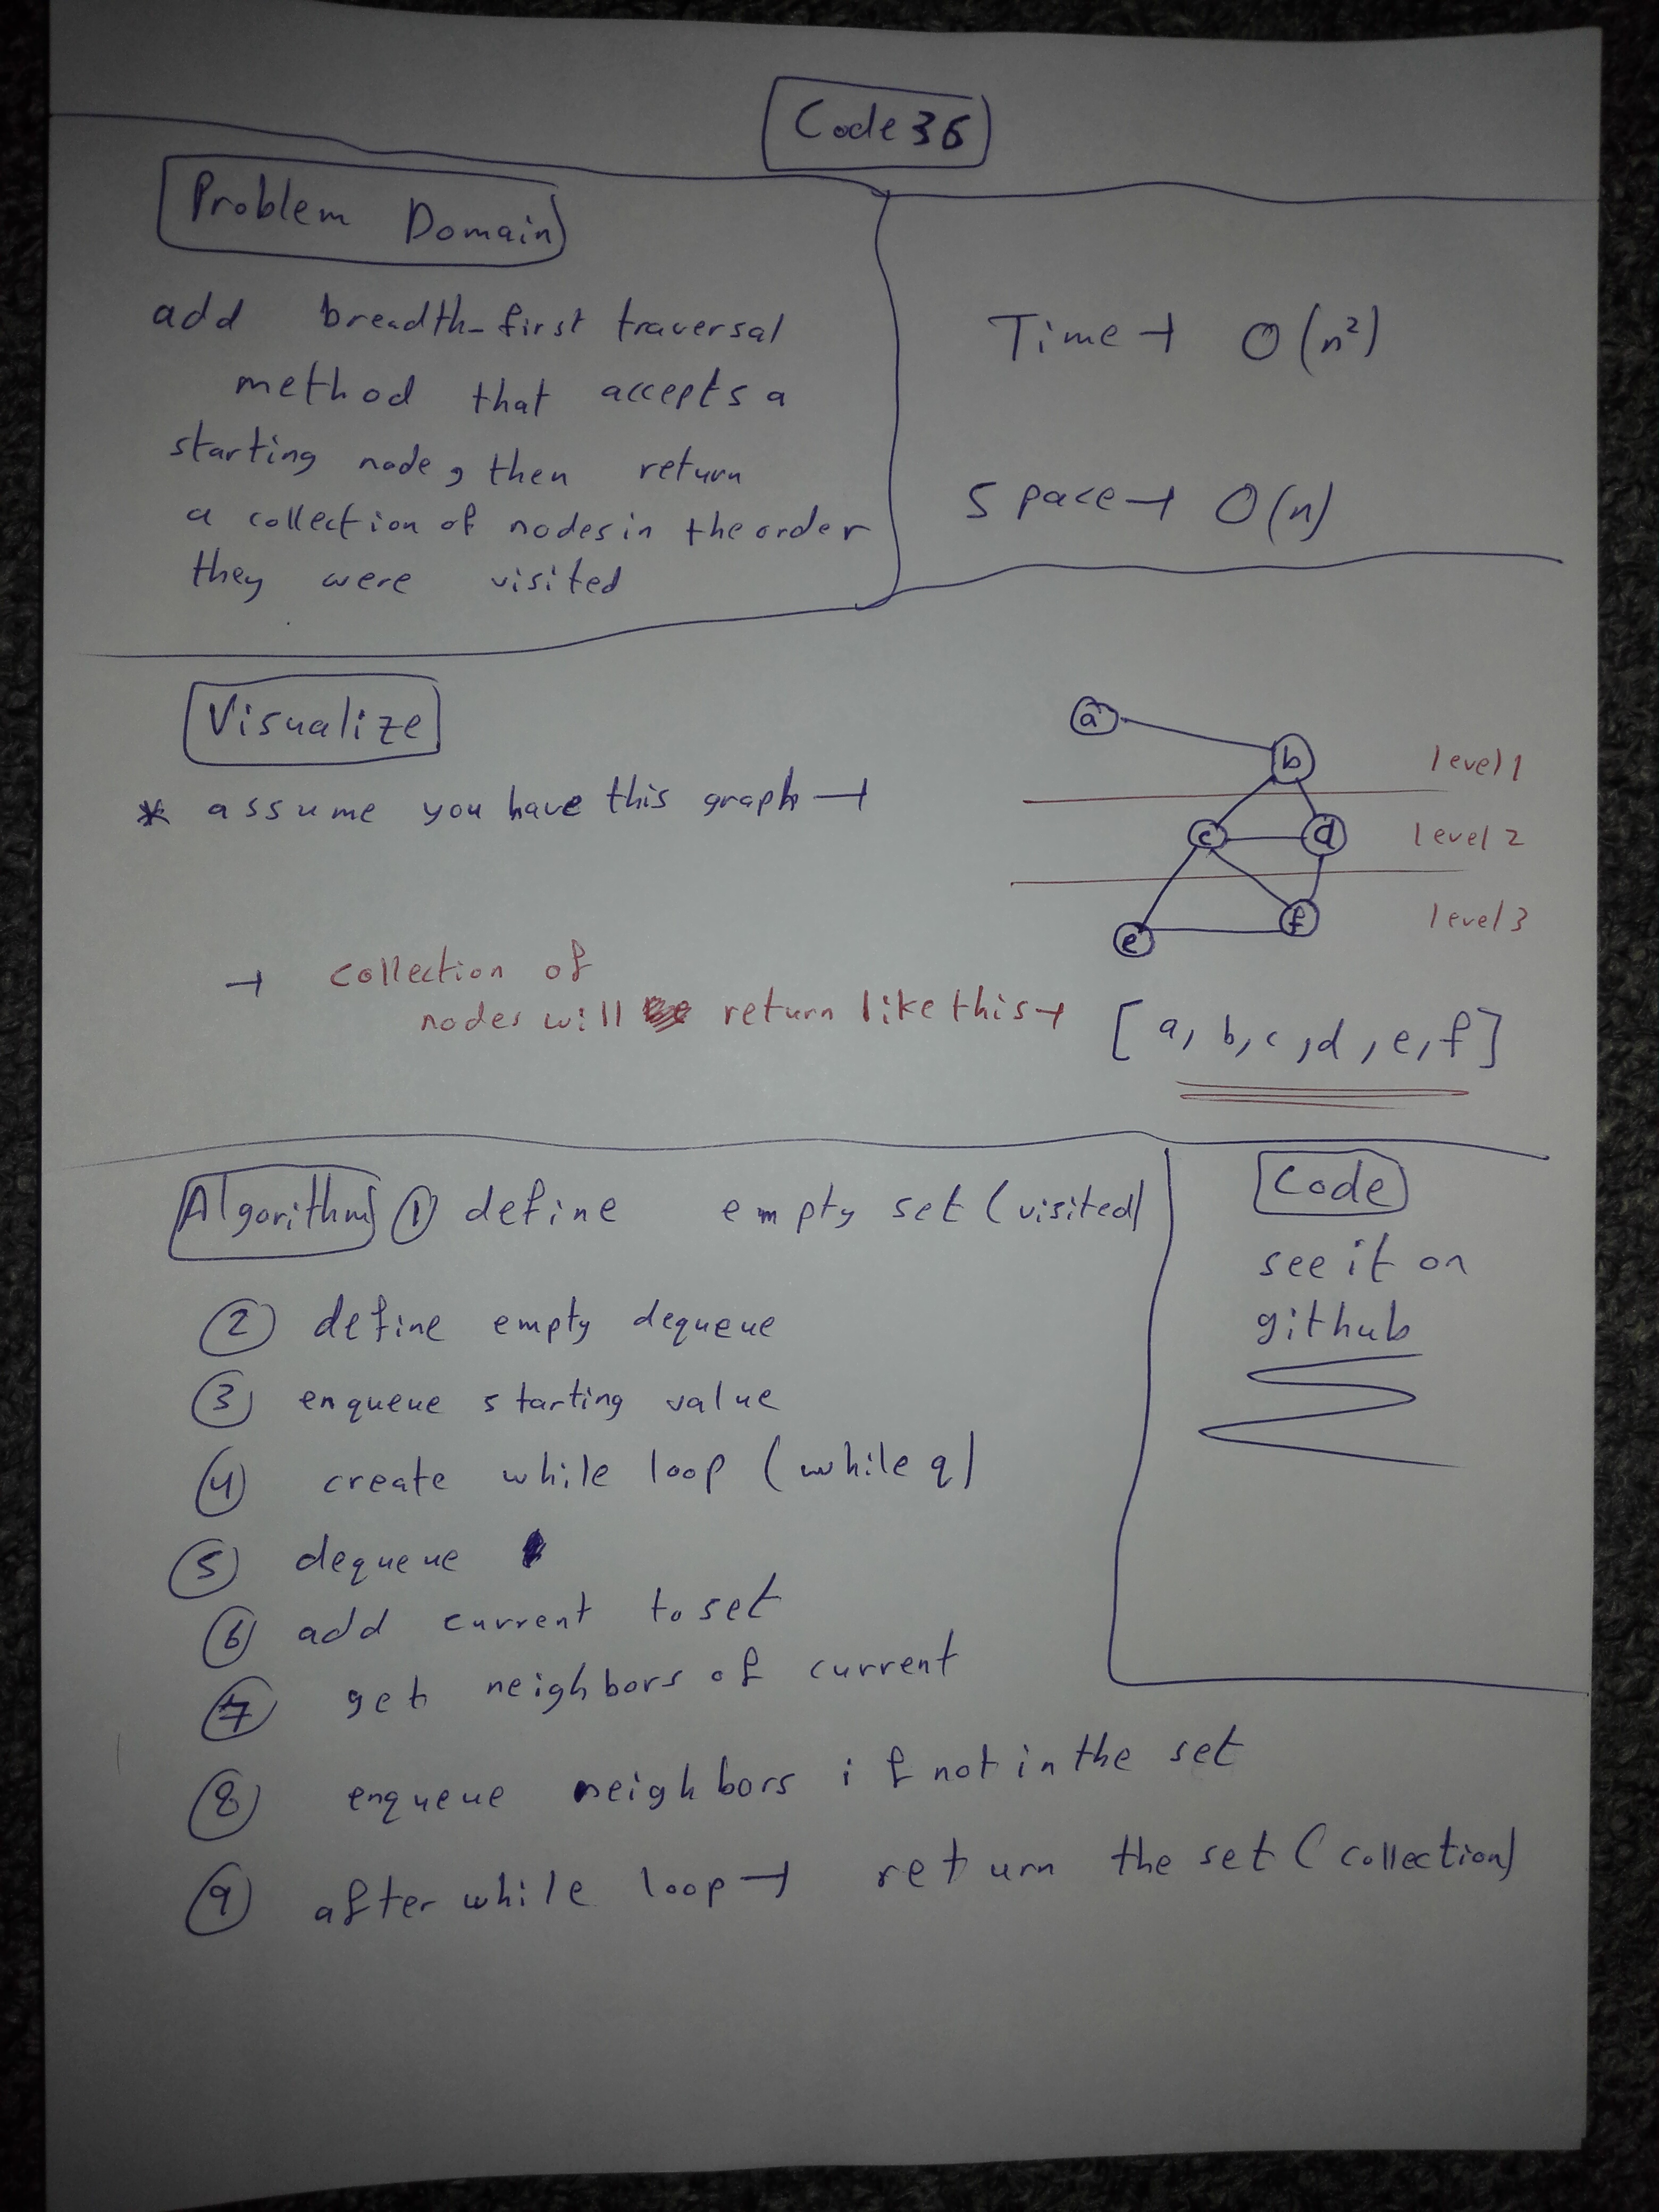 Code 36
Problem Domain
add breadth-first traversal
method that accepts a
starting node, then return
a collection of nodes in the order
they were visited
Time → O(n²)
Space → O(n)
Visualize
* assume you have this graph →
a
b
c
d
e
f
level 1
level 2
level 3
→ collection of
nodes will return like this → [a, b, c, d, e, f]
Algorithm ① define empty set (visited)
② define empty dequeue
③ enqueue starting value
④ create while loop (while q)
⑤ dequeue
⑥ add current to set
⑦ get neighbors of current
⑧ enqueue neighbors if not in the set
⑨ after while loop → return the set (collection)
Code
see it on
github